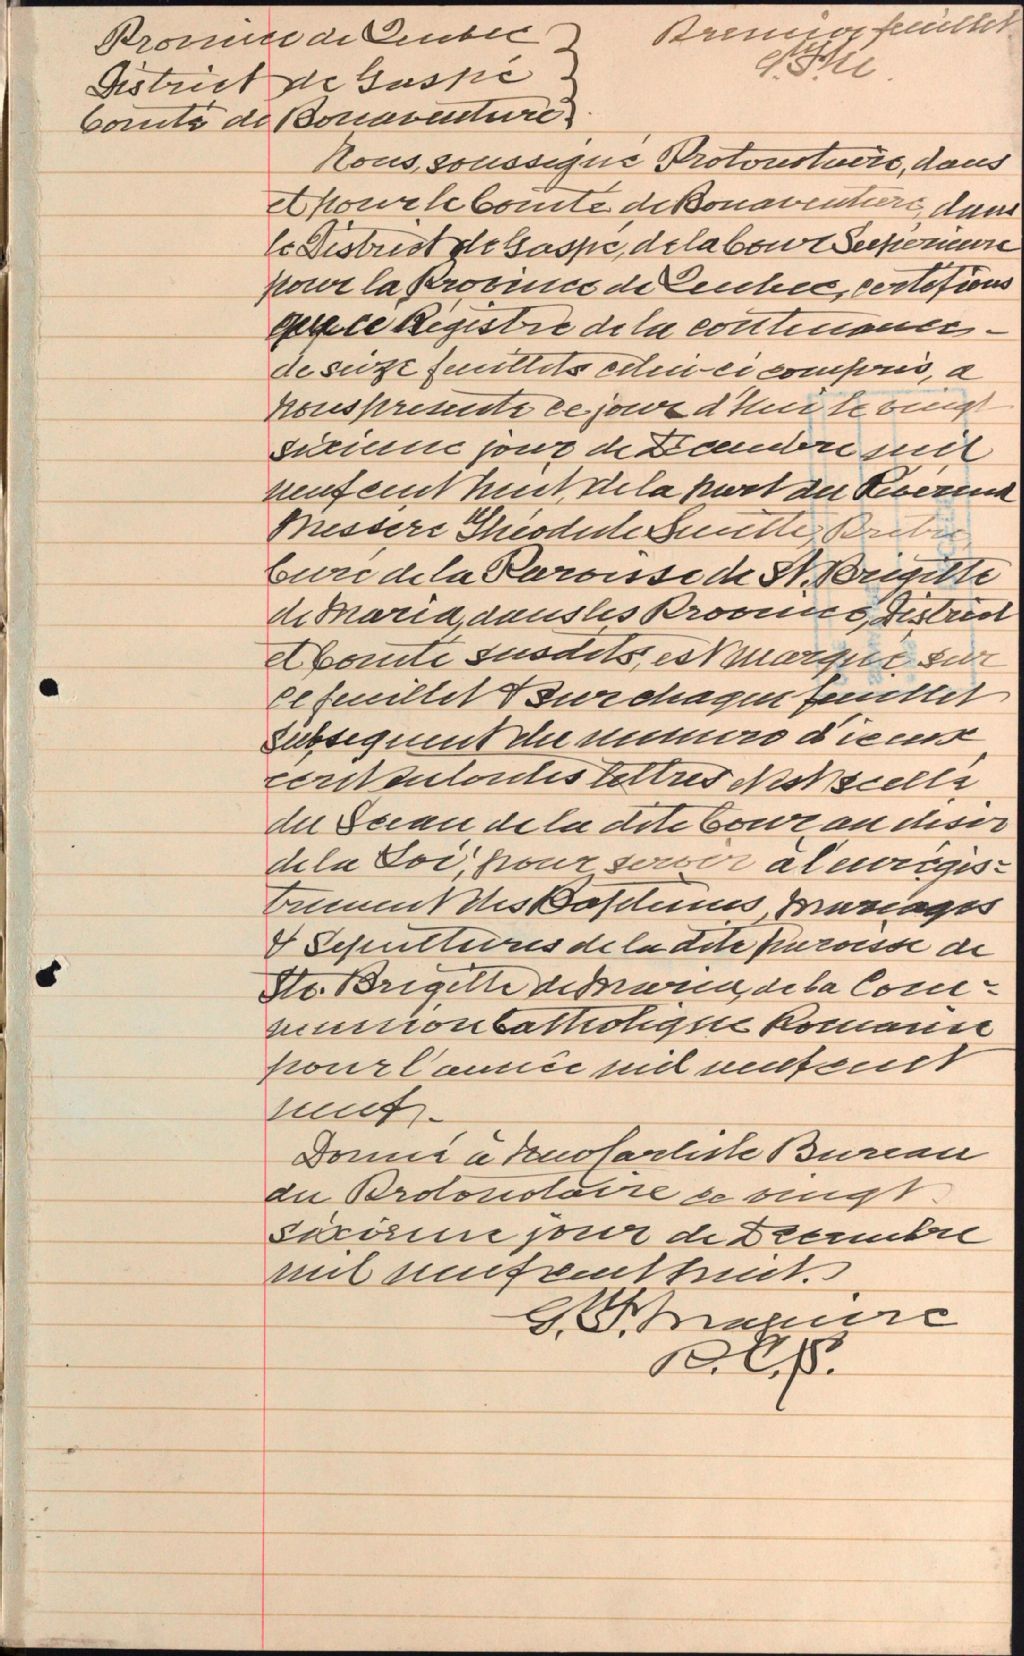 Province de Quebec
District de Gaspé
Comté de Bonaventure
Premier feuillet.
Nous, soussigné Protonotaire, dans
et pour le Comté de Bonaventure, dans
le District de Gaspé, de la Cour Supérieure
pour la Province de Quebec, certifions
que ce Régistre de la contenance -
de seize feuillets celui-ci compris, a
nous presenté ce jour d'hui le vingt
sixieme jour de Decembre mil
neuf cent huit, de la part du Révérend
Messere Théodule Smith, Prêtre
Curé de la Paroisse de St. Brigitte
de Maria, dans les Province, District
et Comté susdits, est marqué sur
ce feuillet & sur chaque feuillet
subsequent du numero d'iceux
ecrit en toutes lettres et est scellé
du Sceau de la dite Cour, au désir
de la Loi, pour servir à l'enrégis=
trement des Baptêmes, Mariages
& Sepultures de la dite paroisse de
Ste. Brigitte de Maria, de la Com=
munion Catholique Romaine
pour l'année mil neuf cent
neuf. -
Donné à New Carlisle Bureau
du Protonotaire ce vingt
sixieme jour de Decembre
mil neuf cent huit.
G. F. Maguire
P. C. S.